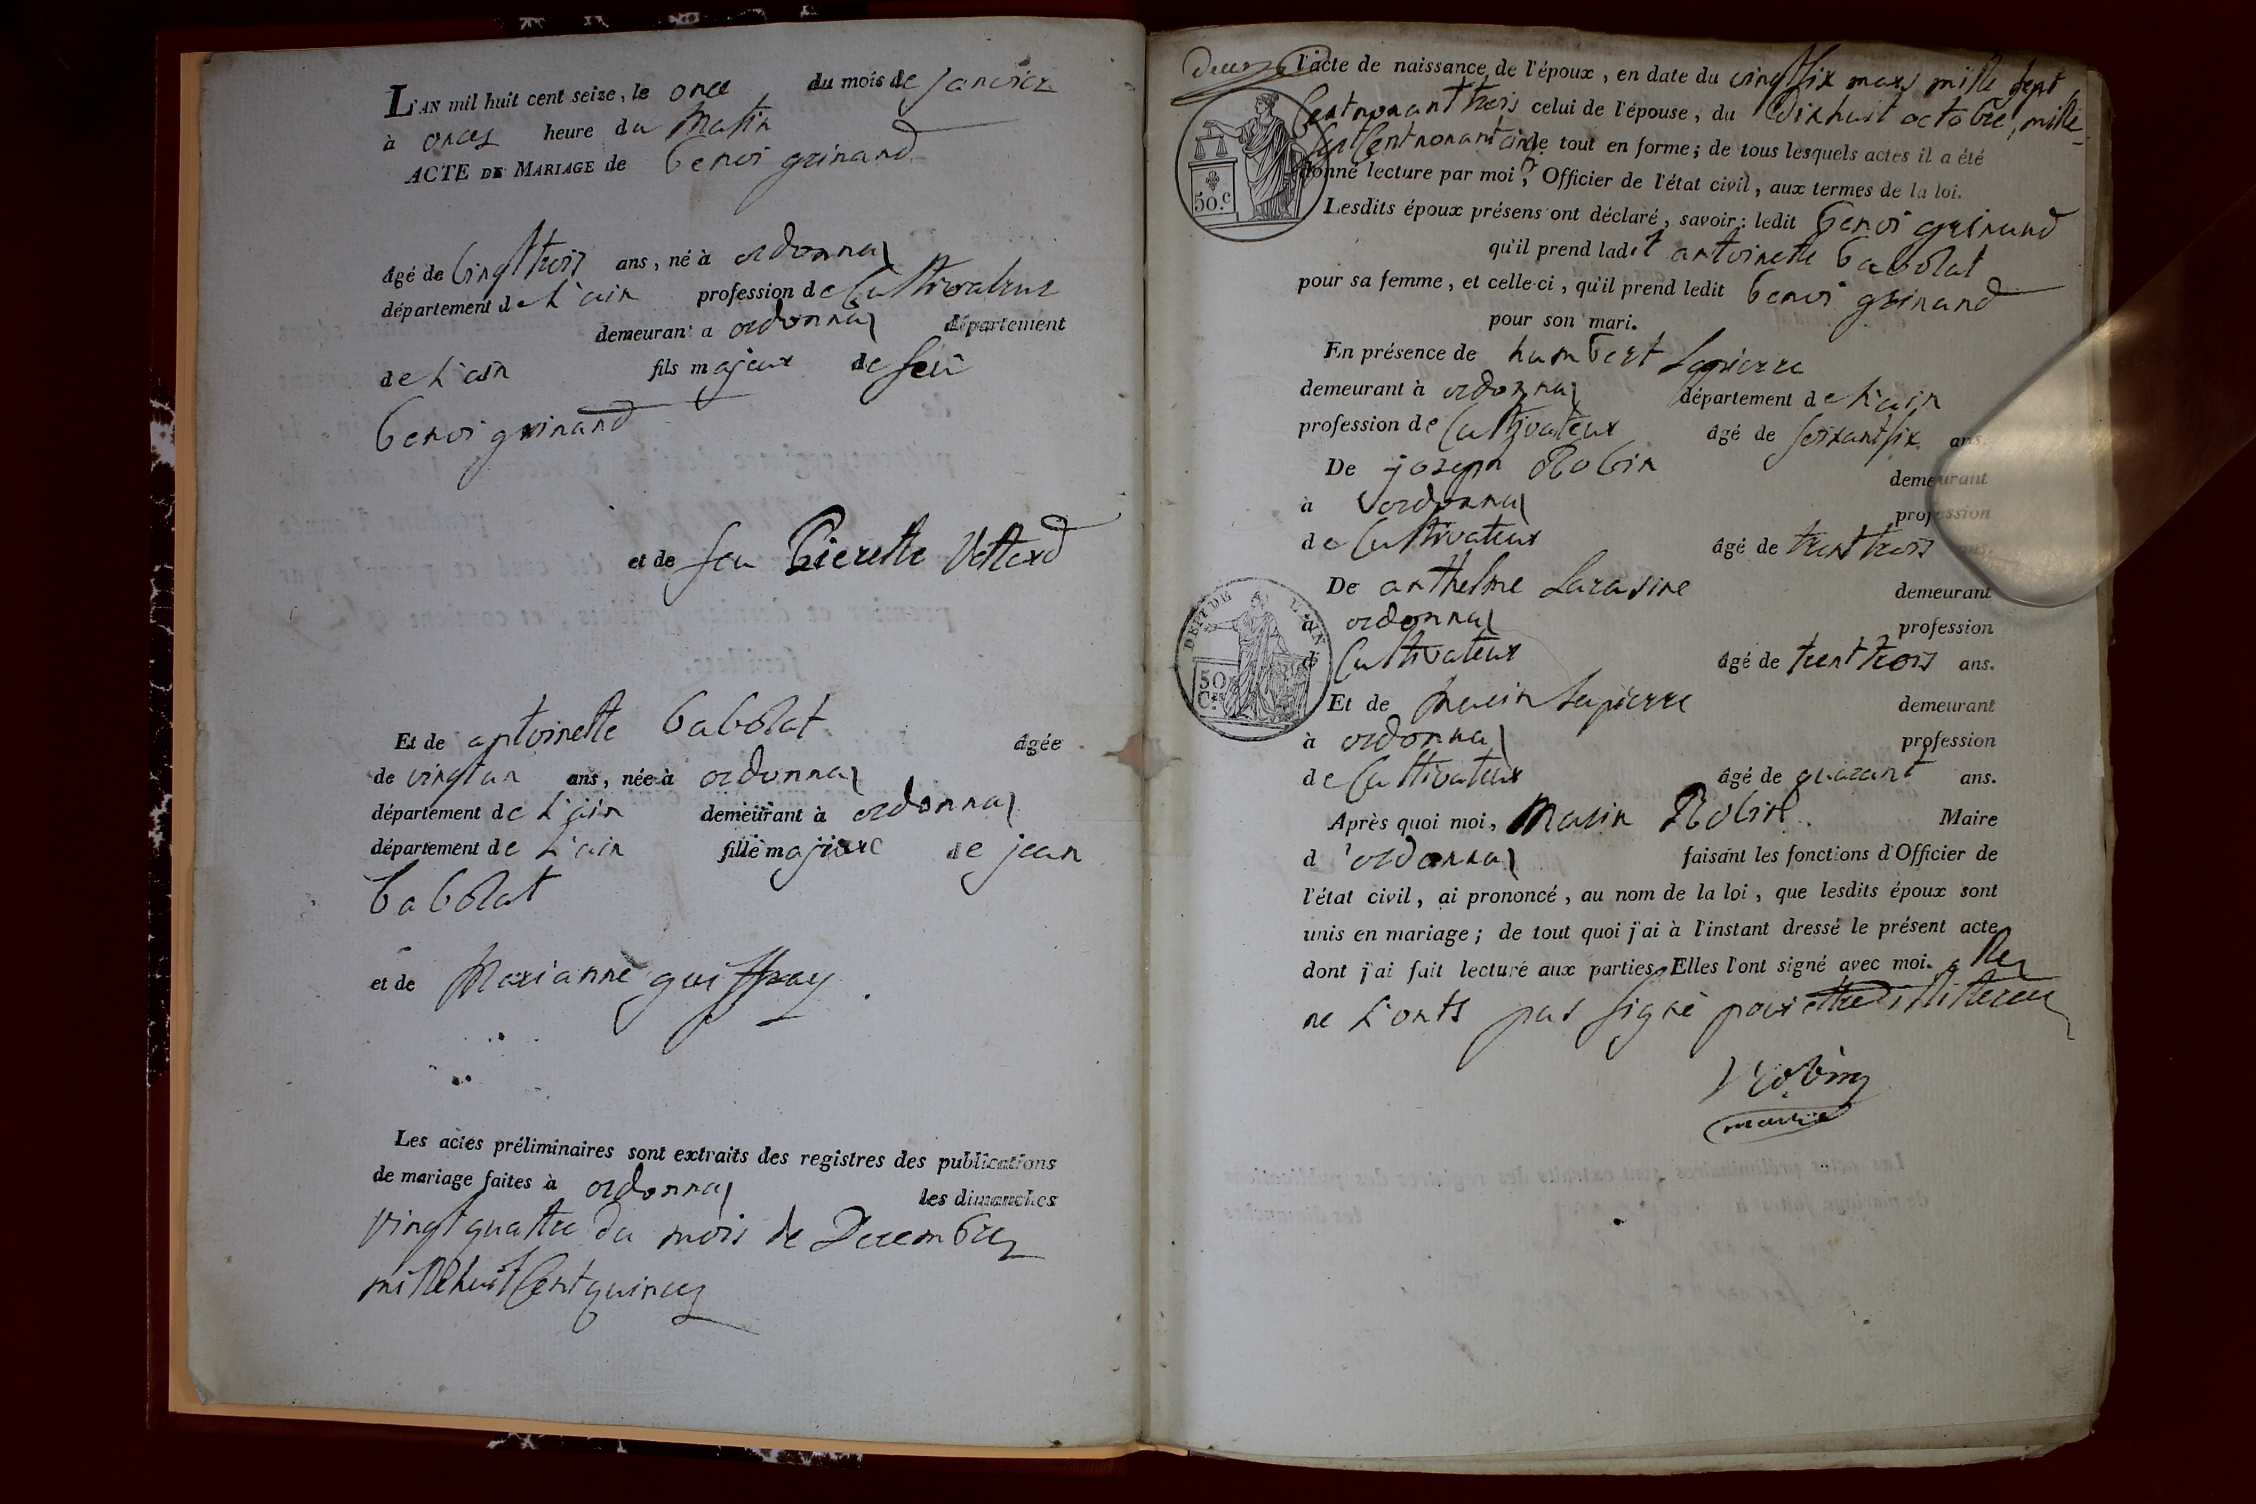 L'AN mil huit cent seize, le once du mois de janvier
à onces heure du Matin
ACTE DE MARIAGE de benoi guinand
âgé de vingttrois ans, né à ordonnas
département de L'ain profession de Cultivateur
demeurant a ordonnas département
de L'ain fils majeur de feu
benoi guinand
et de feu Pierette Vettard
Et de antoinette babolat âgée
de vingtun ans, née à ordonnas
département de L'ain demeurant à ordonnas
département de L'ain fille majeure de jean
babolat
et de Marianne guiffray
Les actes préliminaires sont extraits des registres des publications
de mariage faites à ordonnas les dimanches
vingt quattre du mois de Decembre
mille huit Cent quinces
l'acte de naissance de l'époux, en date du vingtsix mars mille sept
Cent nonant trois celui de l'épouse, du Dixhuit octobre mille
sept Cent nonant le tout en forme; de tous lesquels actes il a été
donné lecture par moi, Officier de l'état civil, aux termes de la loi.
Lesdits époux présens ont déclaré, savoir: ledit benoi guinand
qu'il prend ladit antoinette babolat
pour sa femme, et celle-ci, qu'il prend ledit benoi guinand
pour son mari.
En présence de humbert Lapierre
demeurant à ordonnas département de L'ain
profession de Cultivateur âgé de soixantsix ans.
De joseph Robin demeurant
à ordonnas profession
de Cultivateur âgé de trenttrois
De anthelme Larasine demeurant
à ordonnas profession
d Cultivateur âgé de trenttrois ans.
Et de Lapierre demeurant
à ordonnas profession
de Cultivateur âgé de quarant ans.
Après quoi moi, Marin Robin Maire
d'ordonnas faisant les fonctions d'Officier de
l'état civil, ai prononcé, au nom de la loi, que lesdits époux sont
unis en mariage; de tout quoi j'ai à l'instant dressé le présent acte
dont j'ai fait lecture aux parties. Elles l'ont signé avec moi. elles
ne L'onts pas signé pour être illitterez
Robin
maire
50.c
DEPT DE L'AIN
50
C.ES